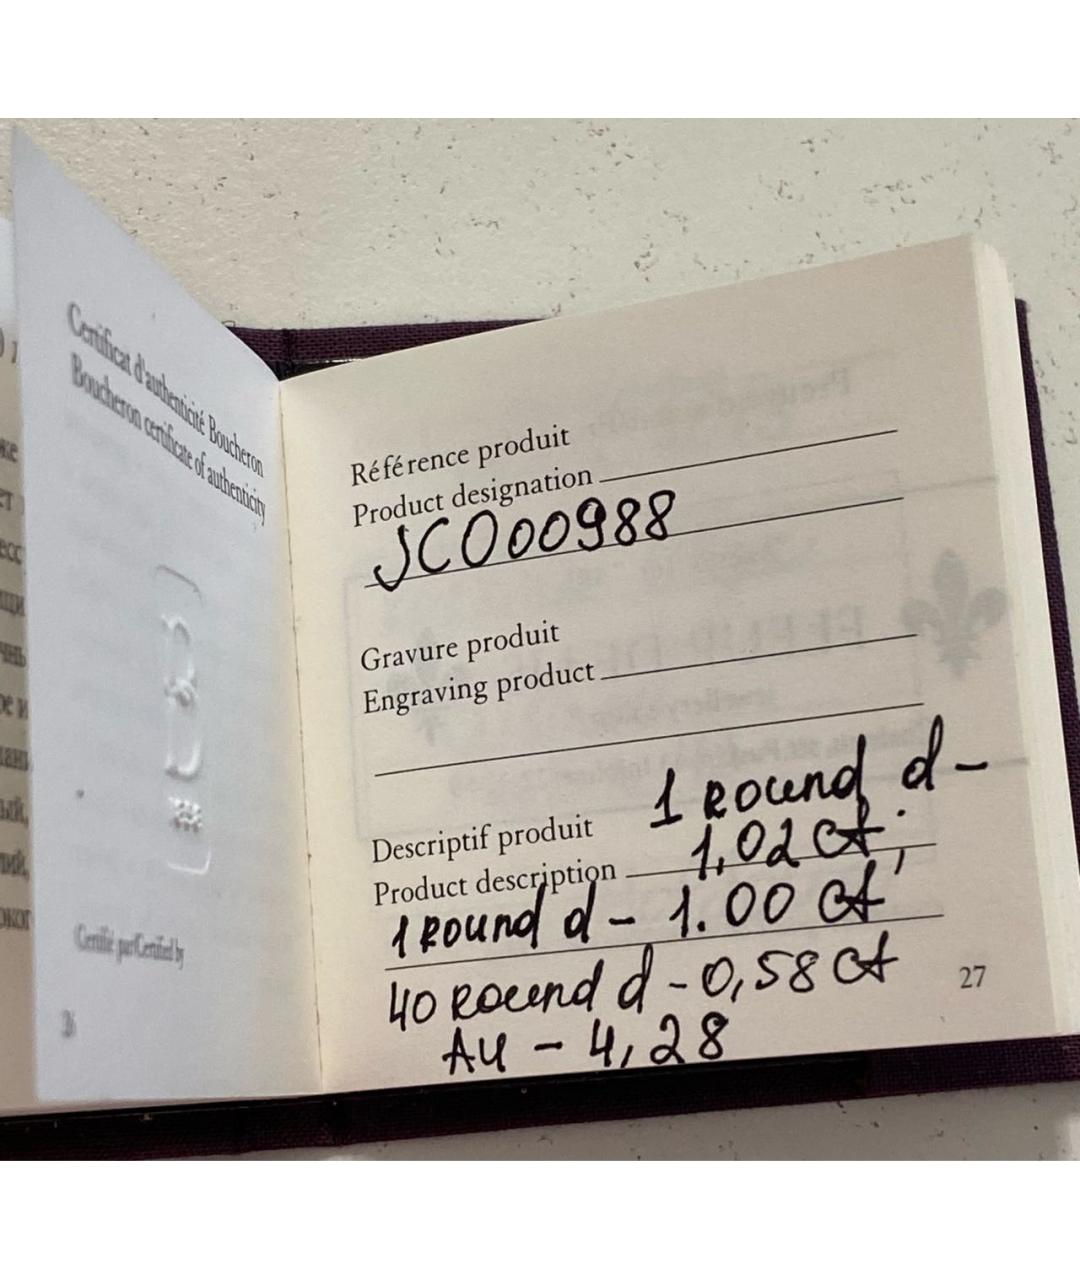 Certificat d'authenticité Boucheron
Boucheron certificate of authenticity
Certifié par/Certified by
Référence produit
Product designation
JCO00988
Gravure produit
Engraving product
Descriptif produit
Product description
1 Round d -
1,02 ct;
1 Round d - 1.00 ct
40 Round d - 0,58 ct
AU - 4,28
27